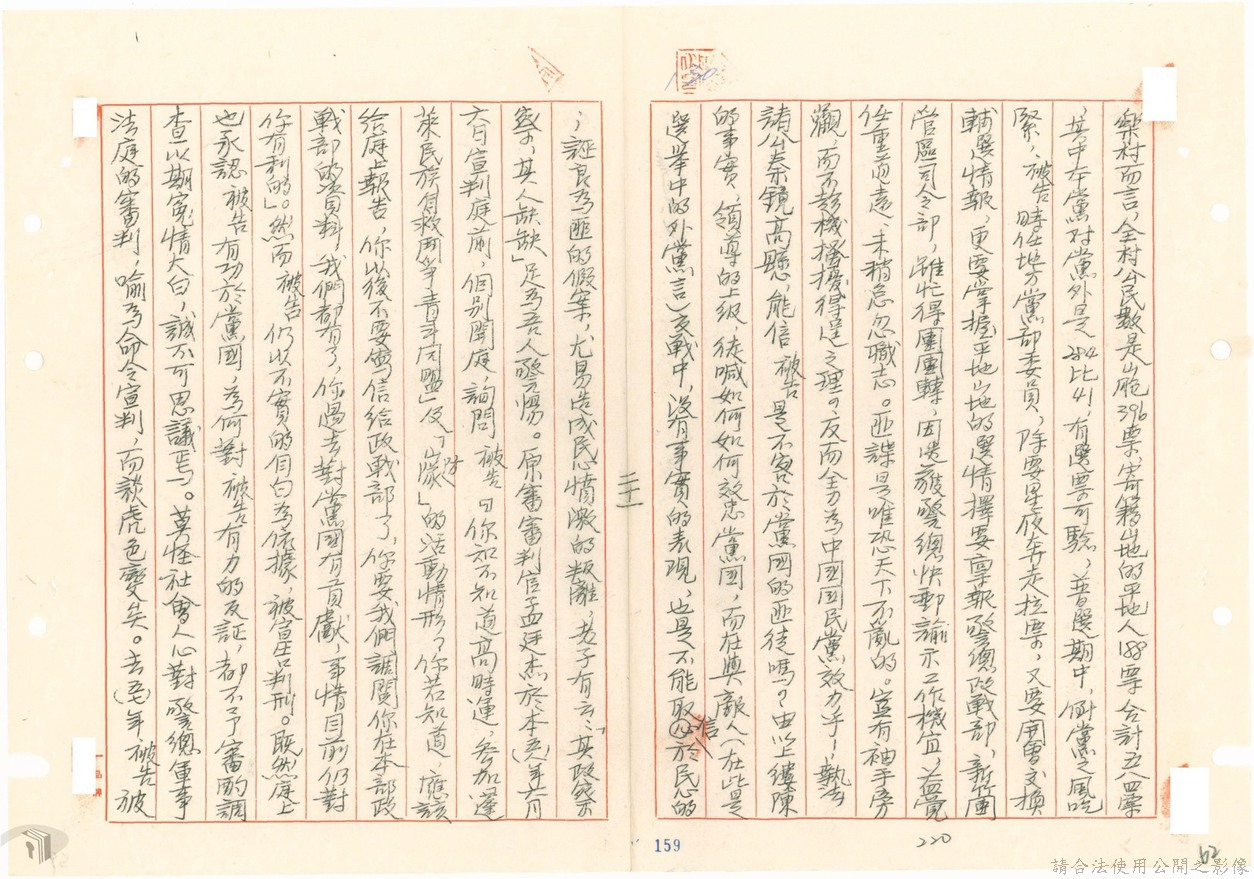 樂村而言,全村公民數是山胞396票,寄籍山地的平地人188票,合計五八四票
,其中本黨對黨外是 比41,有選票可驗,普選期中,倒黨之風吃
緊,被告時任地方黨部委員,除要星夜奔走拉票,又要開會交換
輔選情報,更要掌握平地山地的選情擇要稟報警總政戰部,新竹團
管區司令部,雖忙得團團轉,因迭獲警總快郵諭示工作機宜,益覺
任重道遠,未稍怠忽職志。匪諜是唯恐天下不亂的。豈有袖手旁
觀,而不趁機搔擾得逞之理?反而全力為中國國民黨效力乎!執事
諸公秦鏡高懸,能信被告是不容於黨國的匪徒嗎?由以上縷陳
的事實,領導的上級,徒喊如何如何效忠黨國,而在與敵人(在此是
選舉中的外黨言)交戰中,沒有事實的表現,也是不能取信於民心的
二十一
,誣良為匪的假案,尤易造成民心憤激的叛離,老子有云:「其政察
察,其人缺缺」足為吾人惕。原審審判官孟廷杰於本(五八)年六月
六日宣判庭前,個別開庭,詢問被告曰你知不知道高時運,參加蓬
萊民族自救鬥爭青年同盟」及「山防隊」的活動情形?你若知道,應該
給庭上報告,你以後不要寫信給政戰部了,你要我們調閱你在本部政
戰部的資料,我們都有了,你過去對黨國有貢獻,事情目前仍對
你有利的」。然而被告仍以不實的自白為依據,被宣告判刑。既然庭上
也承認被告有功於黨國,為何對被告有力的反証,都不予審酌調
查以期寃情大白,誠不可思議焉。莫怪社會人心對警總軍事
法庭的審判,喻為命令宣判,而談虎色變矣。去(五七)年被告被
159
220
62
請合法使用公開之影像